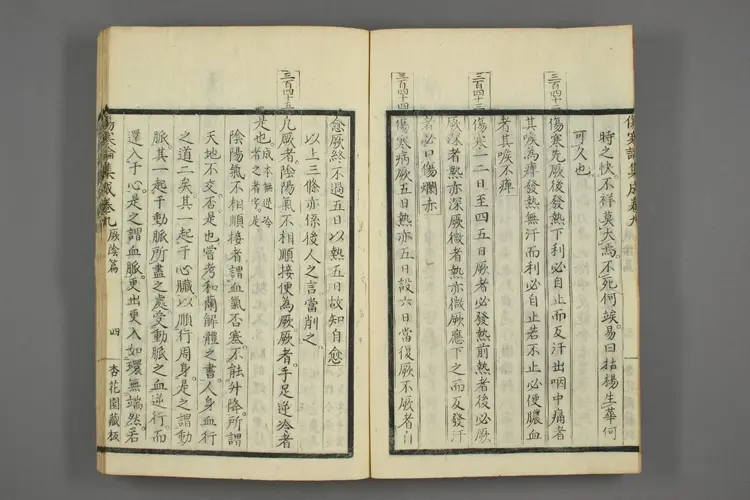 傷寒論集成卷九
時之快。不祥莫大焉。不死何竢。易曰枯楊生華何
可久也。
三百四十二
傷寒先厥後發熱下利必自止而反汗出咽中痛者
其喉為痺發熱無汗而利必自止若不止必便膿血
者其喉不痺
三百四十三
傷寒一二日至四五日厥者必發熱前熱者後必厥
厥深者熱亦深厥微者熱亦微厥應下之而反發汗
者必口傷爛赤
三百四十四
傷寒病厥五日熱亦五日設六日當復厥不厥者自
愈厥終不過五日以熱五日故知自愈
以上三條亦係後人之言當削之
三百四十五
凡厥者。陰陽氣不相順接便為厥厥者。手足逆冷者
是也。成本無逆冷者之者字是
陰陽氣不相順接者謂血氣否塞。不能升降。所謂
天地不交否是也嘗考和蘭解體之書。人身血行
之道二矣其一起于心臟以順行周身。是之謂動
脈。其一起于動脈所盡之處受動脈之血逆行而
還入于心。是之謂血脈。更出更入如環無端然。若
傷寒論集成卷九 厥陰篇 四 杏花園藏板